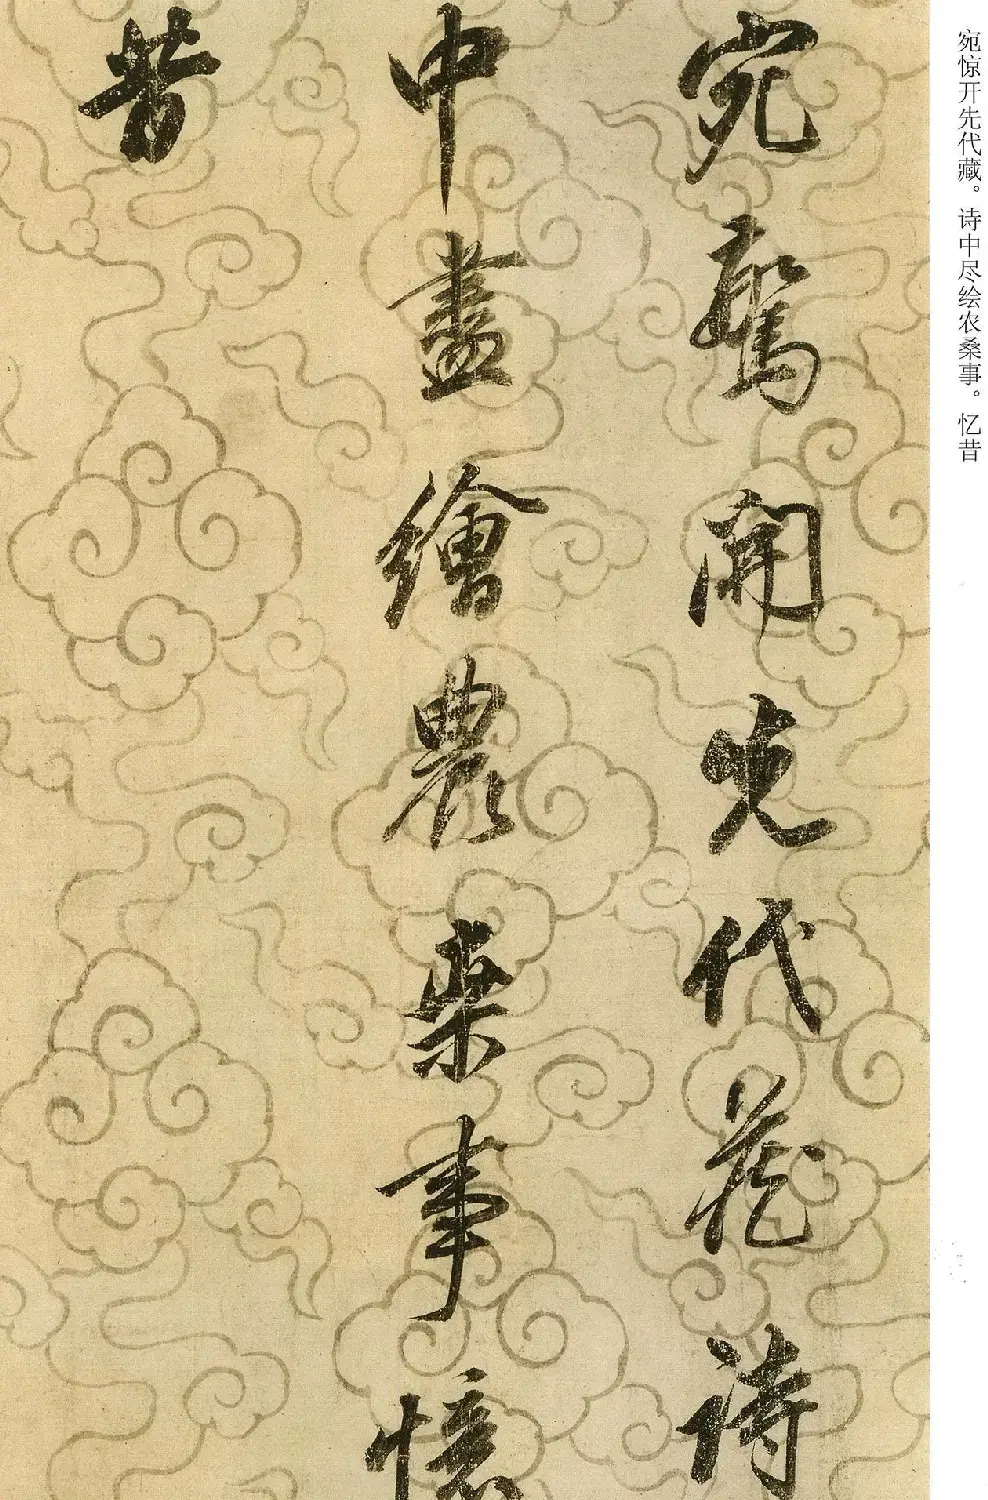 宛惊开先代藏。诗中尽绘农桑事。忆昔
宛驚開先代藏詩
中盡繪農桒事憶
昔